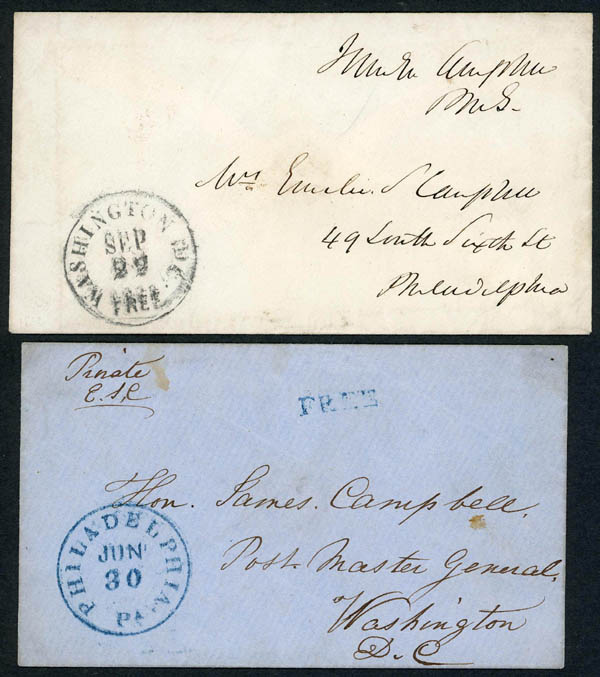 Campbell
PMG.
Mrs Emilie S Campbell
49 South Sixth St
Philadelphia
WASHINGTON D.C.
SEP
FREE
Private
E.S.C
FREE
Hon. James. Campbell,
Post Master General,
Washington
D.C
PHILADELPHIA
JUN
30
PA.